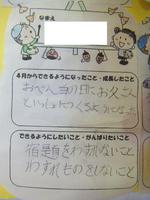 なまえ
4月からできるようになったこと・成長したこと
おべん当の日に、お父さん
といっしょにつくるようになった
できるようにしたいこと・がんばりたいこと
宿題をわすれないこと
わすれものをしないこと